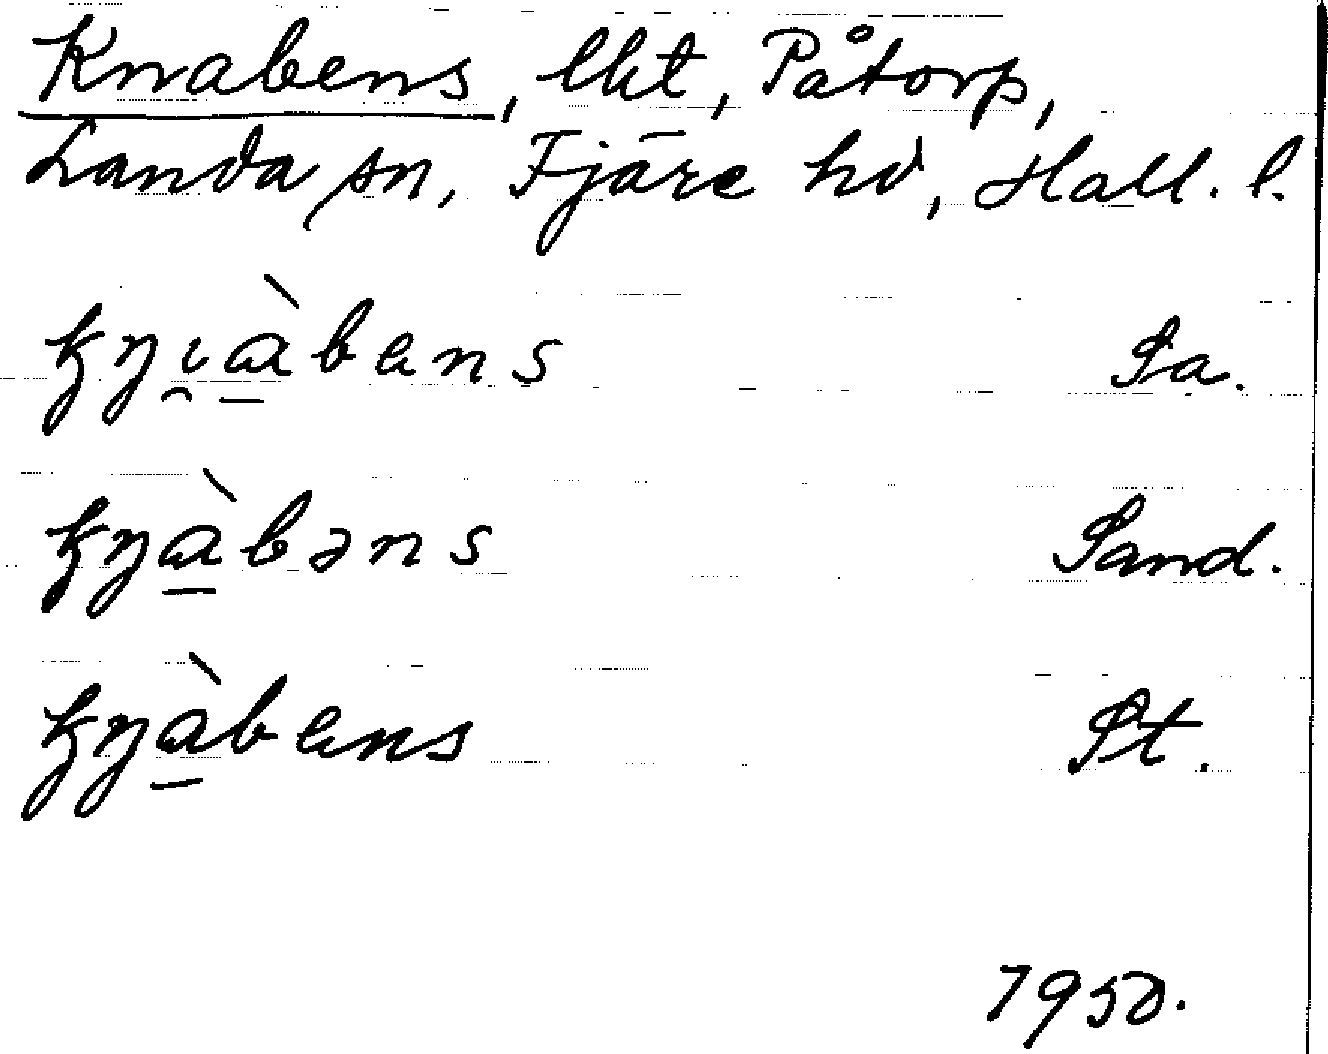 Knabens, lht, Påtorp,
Landa sn, Fjäre hd, Hall. l.
kŋɩ̯à̱bens Sa.
kŋà̱bəns Sand.
kŋà̱bens St.
1950.